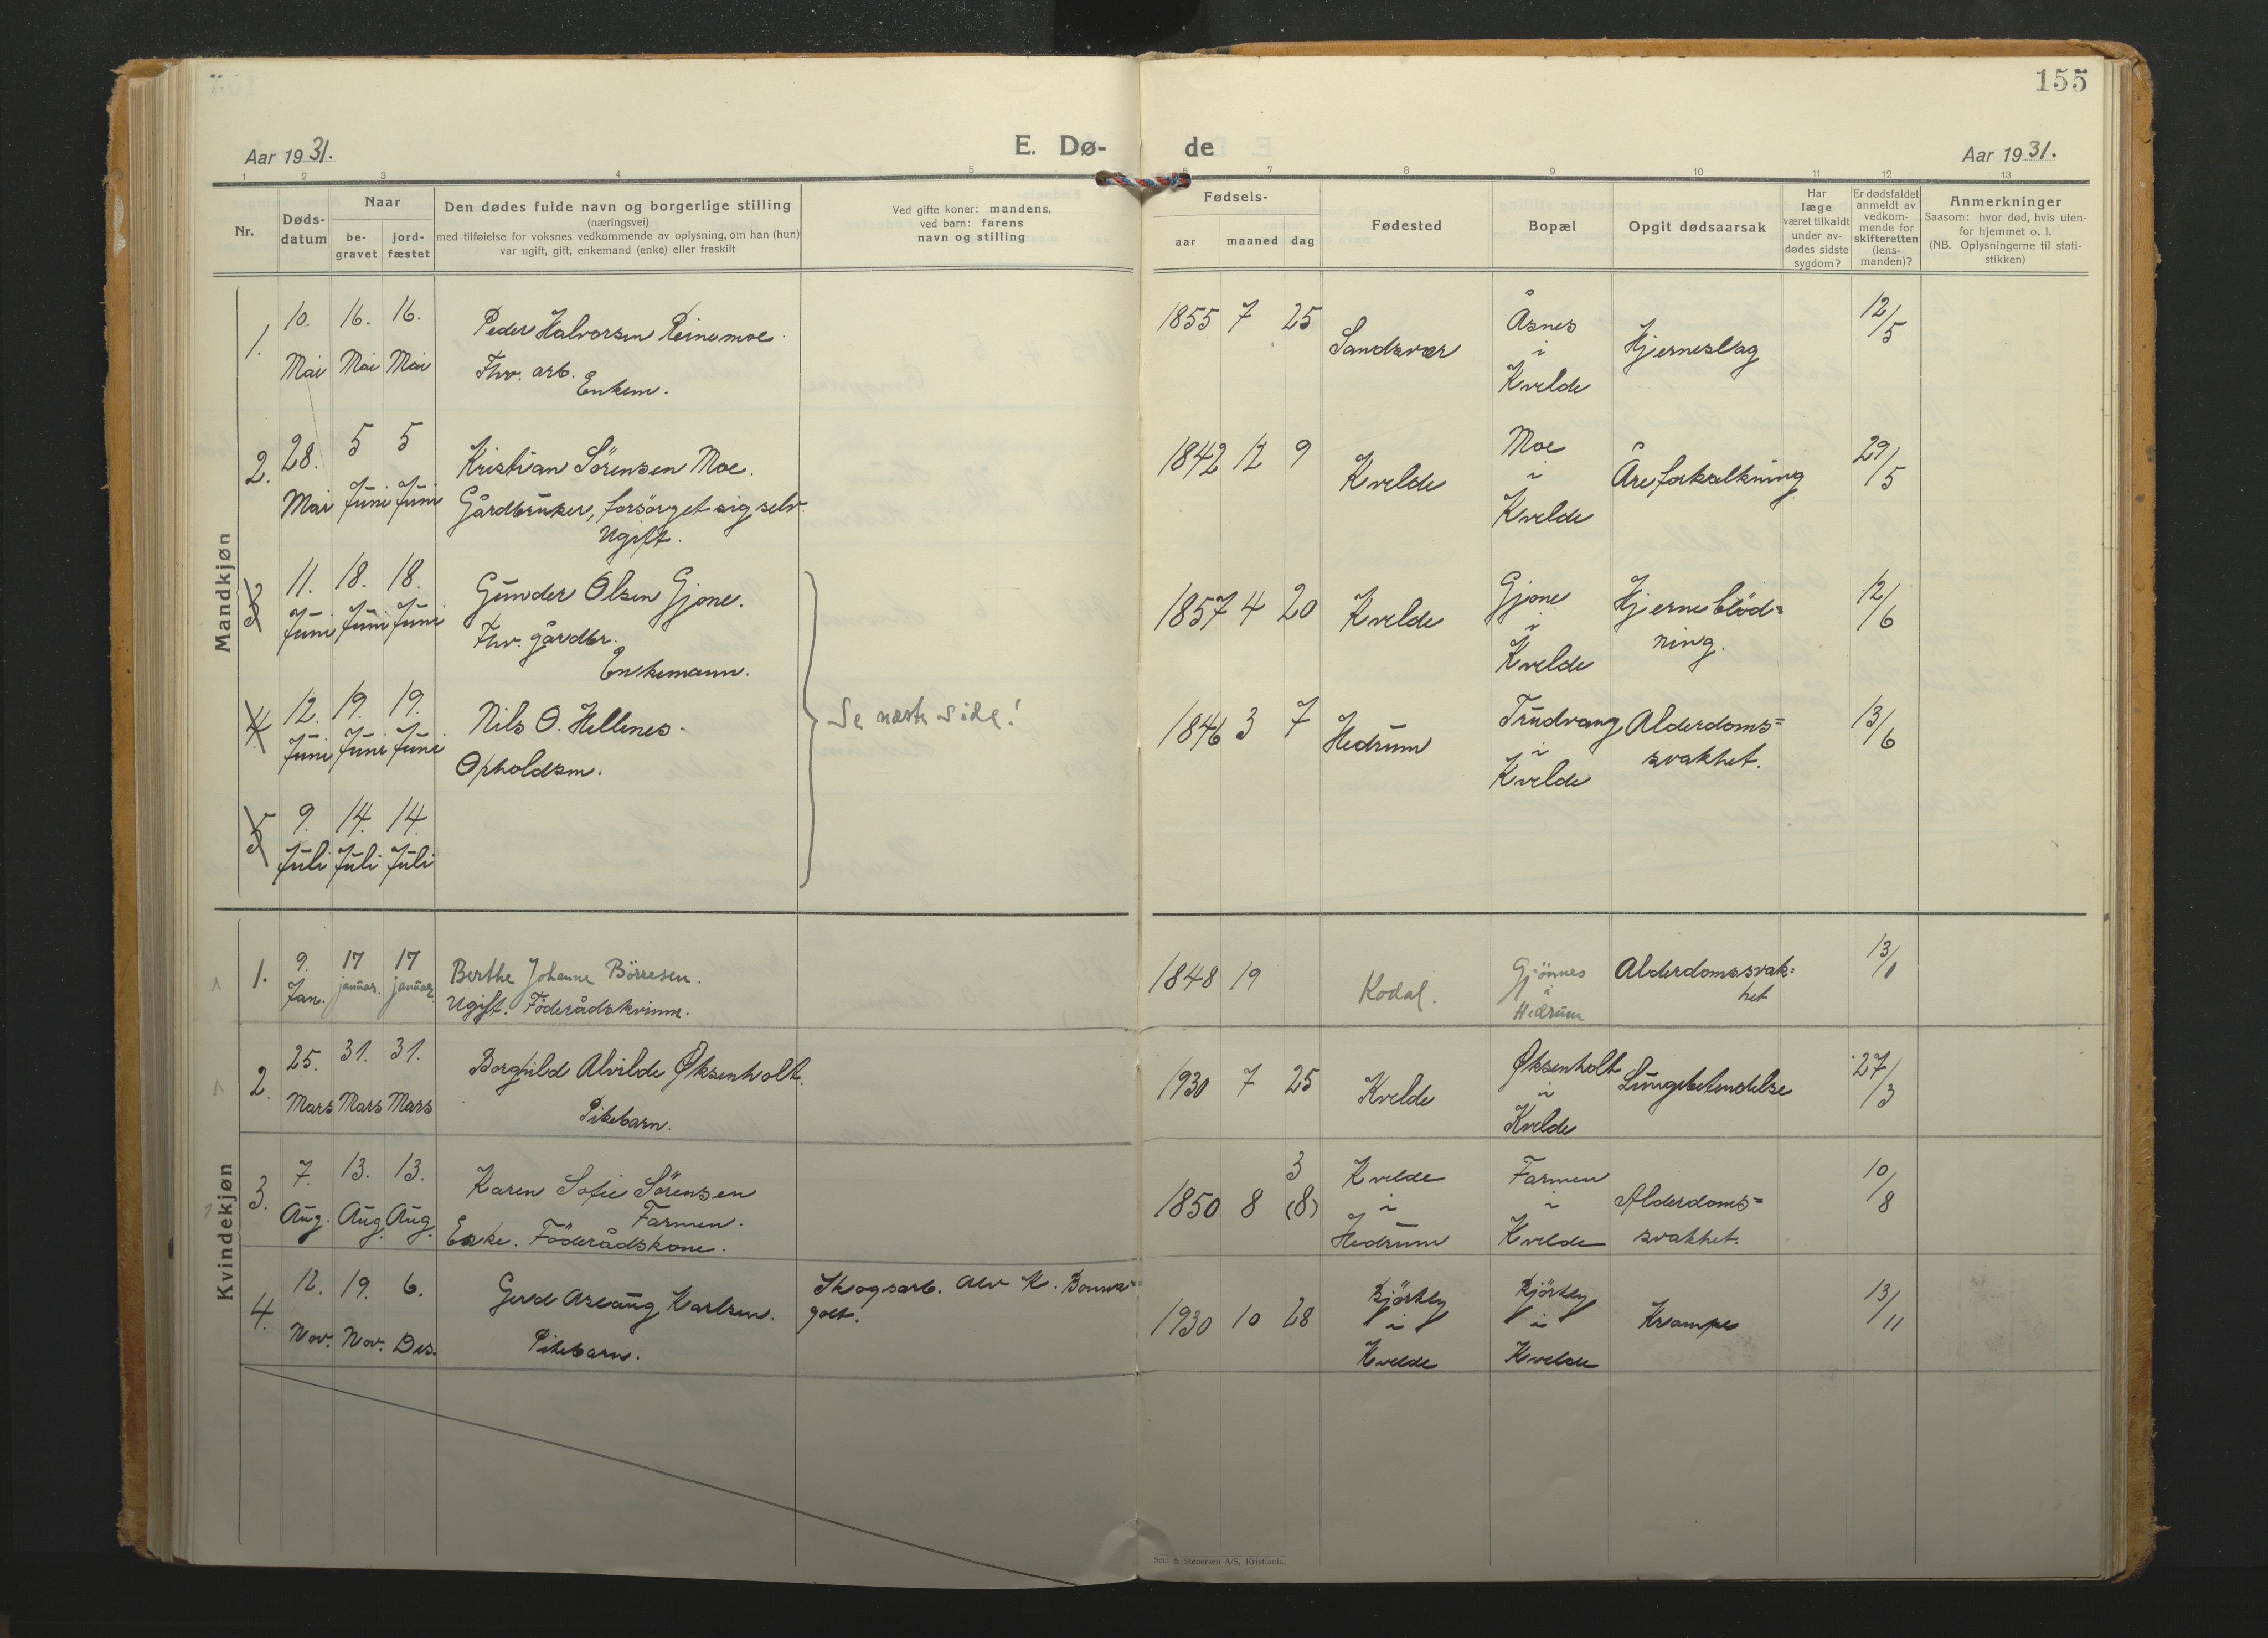 155
Aar 1931.
E. Dø-
de
Aar 1931.
1 2 3 4 5 6 7 8 9 10 11 12 13
Nr.
Døds-
datum
Naar
be-
gravet
jord-
fæstet
Den dødes fulde navn og borgerlige stilling
(næringsvei)
med tilføielse for voksnes vedkommende av oplysning, om han (hun)
var ugift, gift, enkemand (enke) eller fraskilt
Ved gifte koner: mandens,
ved barn: farens
navn og stilling
Fødsels-
aar
maaned
dag
Fødested
Bopæl
Opgit dødsaarsak
Har
læge
været tilkaldt
under av-
dødes sidste
sygdom?
Er dødsfaldet
anmeldt av
vedkom-
mende for
skifteretten
(lens-
manden)?
Anmerkninger
Saasom: hvor død, hvis uten-
for hjemmet o. l.
(NB. Oplysningerne til stati-
stikken)
Mandkjøn
1.
10.
Mai
16.
Mai
16.
Mai
Peder Halvorsen Reinemoe.
Fhv. arb.
Enkem.
1855 7 25
Sandsvær
Åsnes
i
Kvelde
Hjerneslag
12/5
2.
28.
Mai
5
Juni
5
Juni
Kristian Sörensen Moe.
Gårdbruker, forsörget sig selv.
Ugift.
1842 12 9
Kvelde
Moe
i
Kvelde
Åreforkalkning
29/5
3
11.
Juni
18.
Juni
18.
Juni
Gunder Olsen Gjone.
Fhv. gårdbr.
Enkemann.
1857 4 20
Kvelde
Gjone
i
Kvelde
Hjerneblöd=
ning.
12/6
4
12.
Juni
19.
Juni
19.
Juni
Nils O. Hellenes.
Opholdsm.
Se næste side!
1846 3 7
Hedrum
Trudvang
i
Kvelde
Alderdoms=
svakhet.
13/6
5
9.
Juli
14.
Juli
14.
Juli
Kvindekjøn
1.
9.
Jan.
17
januar.
17
januar.
Berthe Johanne Börresen.
Ugift. Föderådskvinne.
1848 19
Kodal.
Gjönnes
i
Hedrum
Alderdomssvak=
het
13/1
2.
25.
Mars
31.
Mars
31.
Mars
Borghild Alvilde Øksenholt.
Pikebarn.
1930 7 25
Kvelde
Øksenholt
i
Kvelde
Lungebetendelse
27/3
3.
7.
Aug.
13.
Aug.
13.
Aug.
Karen Sofie Sörensen
Farmen.
Enke. Föderådskone.
3
1850 8 (8)
Kvelde
i
Hedrum
Farmen
i
Kvelde
Alderdoms=
svakhet.
10/8
4.
12.
Nov.
19.
Nov.
6.
Des.
Gerd Aslaug Karlsen.
Pikebarn.
Skogsarb. Alv K.
1930 10 28
i
Kvelde
i
Kvelde
Krampe
13/11
Sem & Stenersen A/S, Kristiania.